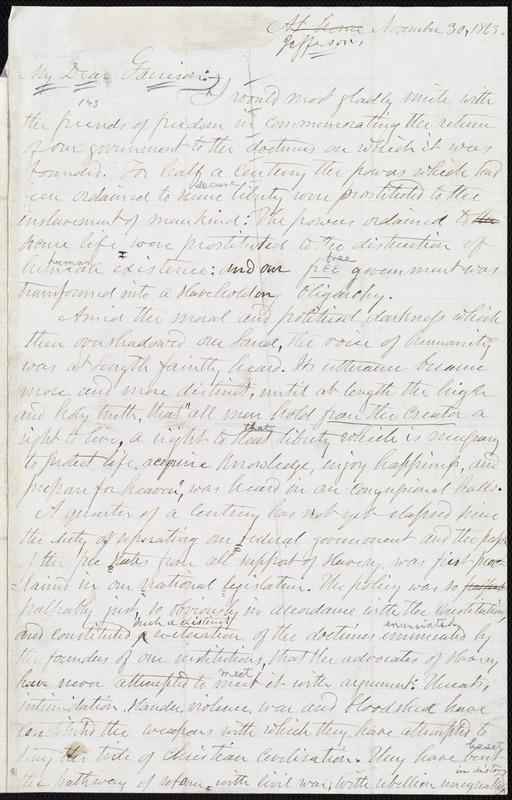 At home November 30, 1863.
Jefferson
My Dear Garrison:
143
I would most gladly unite with
the friends of freedom in commemorating the return
of our government to the doctrines on which it was
founded. For half a century the powers which had
secure
been ordained to secure liberty were prostituted to the
inslavement of mankind: The powers ordained to the
secure life, were prostituted to the distruction of
human free
human existence: and our free government was
transformed into a slaveholding Oligarchy.
Amid the moral and political darkness which
then overshadowed our land, the voice of humanity
was at length faintly heard. Its utterance became
more and more distinct, until at length the high
and holy truth, that "all men hold from the Creator a
that
right to live, a right to that liberty which is necessary
to protect life, acquire knowledge, enjoy happiness, and
prepare for heaven", was heard in our Congressional halls.
A quarter of a century has not yet elapsed since
the duty of separating our federal government and the people
of the free states from all support of slavery, was first proc-
laimed in our national legislation. The policy was so
palpably just, so obviously in accordance with the constitution,
such a distinct enunciated
and constituted reiteration of the doctrines enunciated by
the founders of our institutions, that the advocates of slavery
meet
have never attempted to meet it with argument: Threats,
intimidation, slander, violence, war and bloodshed have
constituted the weapons with which they have attempted to
stay the tide of Christian Civilization. They have
beset
in history
the pathway of reform with civil war, with rebellion unequalled